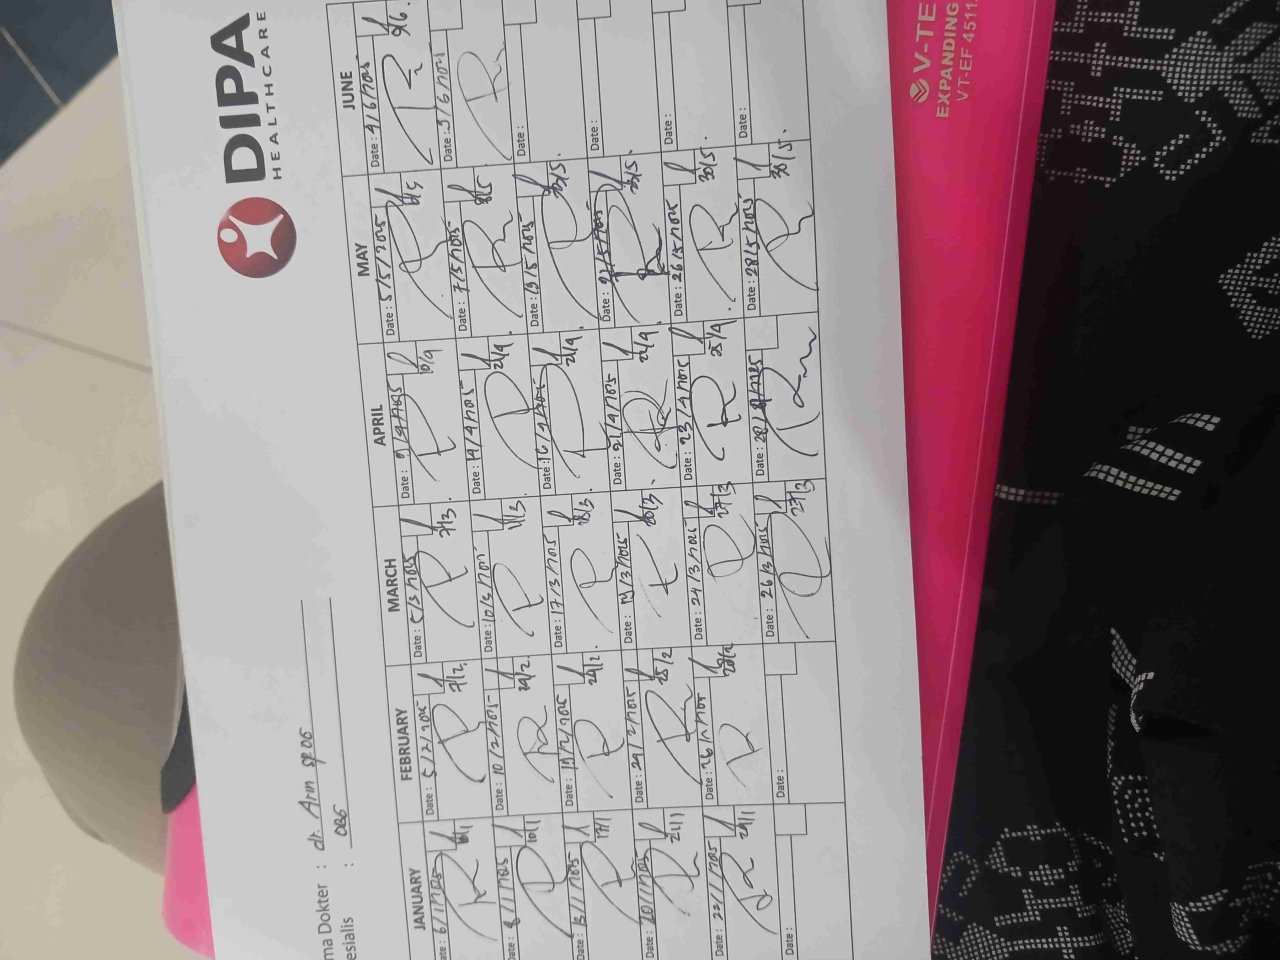 DIPA
HEALTHCARE
ma Dokter : dr. Arm SpOG
esialis : OBG
JANUARY FEBRUARY MARCH APRIL MAY JUNE
ate: 6/1/2025 Date: 5/2/2025 Date: 5/3/2025 Date: 9/4/2025 Date: 5/5/2025 Date: 4/6/2025
7/2 7/3. 10/4 6/5 5/6.
Date: 8/1/2025 Date: 10/2/2025 Date: 10/3/2025 Date: 14/4/2025 Date: 7/5/2025 Date: 9/6/2025
10/1 24/2. 11/3. 21/4 8/5
Date: 13/1/2025 Date: 19/2/2025 Date: 17/3/2025 Date: 16/4/2025 Date: 19/5/2025 Date:
17/1 24/2. 18/3. 21/4. 23/5.
Date: 20/1/2025 Date: 24/2/2025 Date: 19/3/2025 Date: 21/4/2025 Date: 21/5/2025 Date:
21/1 25/2 20/3. 22/4. 23/5.
Date: 22/1/2025 Date: 26/2/2025 Date: 24/3/2025 Date: 23/4/2025 Date: 26/5/2025 Date:
24/1 28/2 27/3 25/4 30/5.
Date: Date: Date: 26/3/2025 Date: 28/4/2025 Date: 28/5/2025 Date:
27/3 30/5.
V-TE
EXPANDING
VT-EF 4511